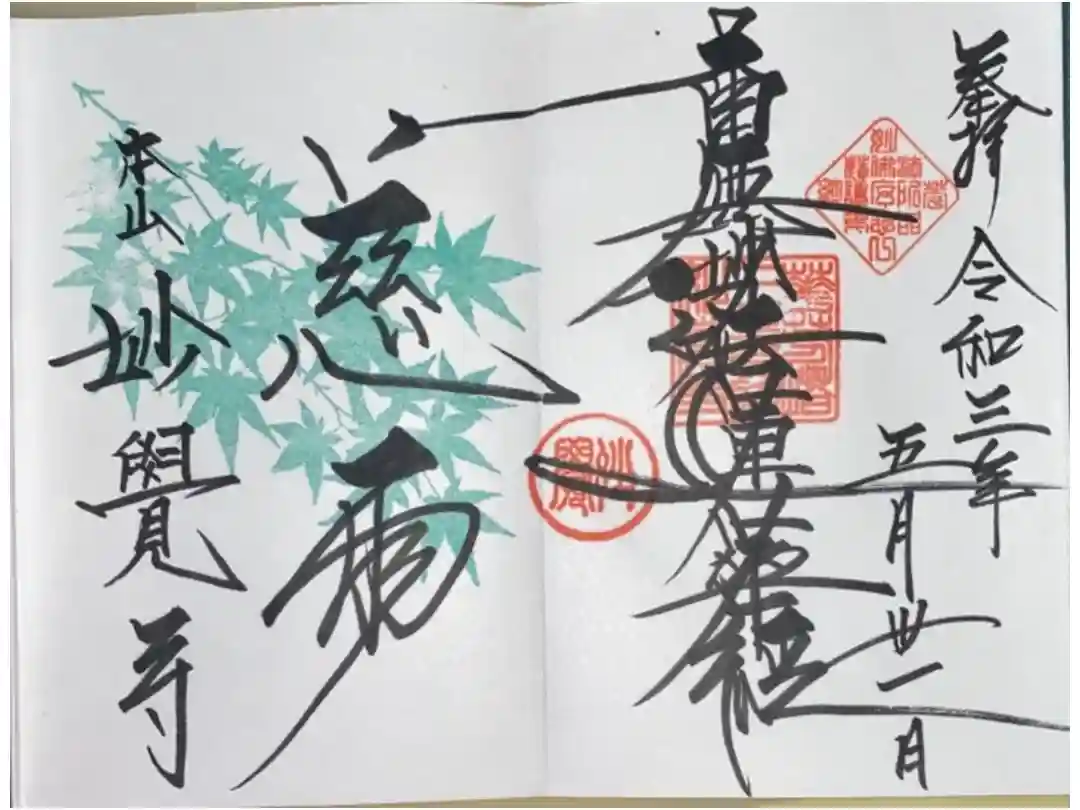 奉拝 令和三年
五月卅一日
南無妙法蓮華経
妙覺
慈雨
本山 妙覺寺